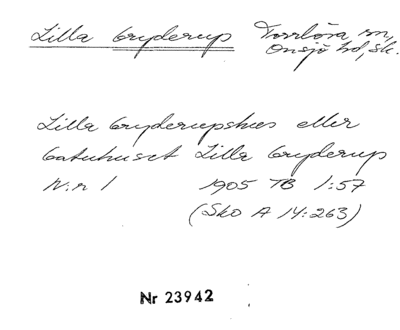 Lilla Gryderup Torrlösa sn,
Onsjö hd, Sk.
Lilla Gryderupshus eller
Gatuhuset Lilla Gryderup
N:r 1 1905 TB 1:57
(Sko A 14:263)
Nr 23942